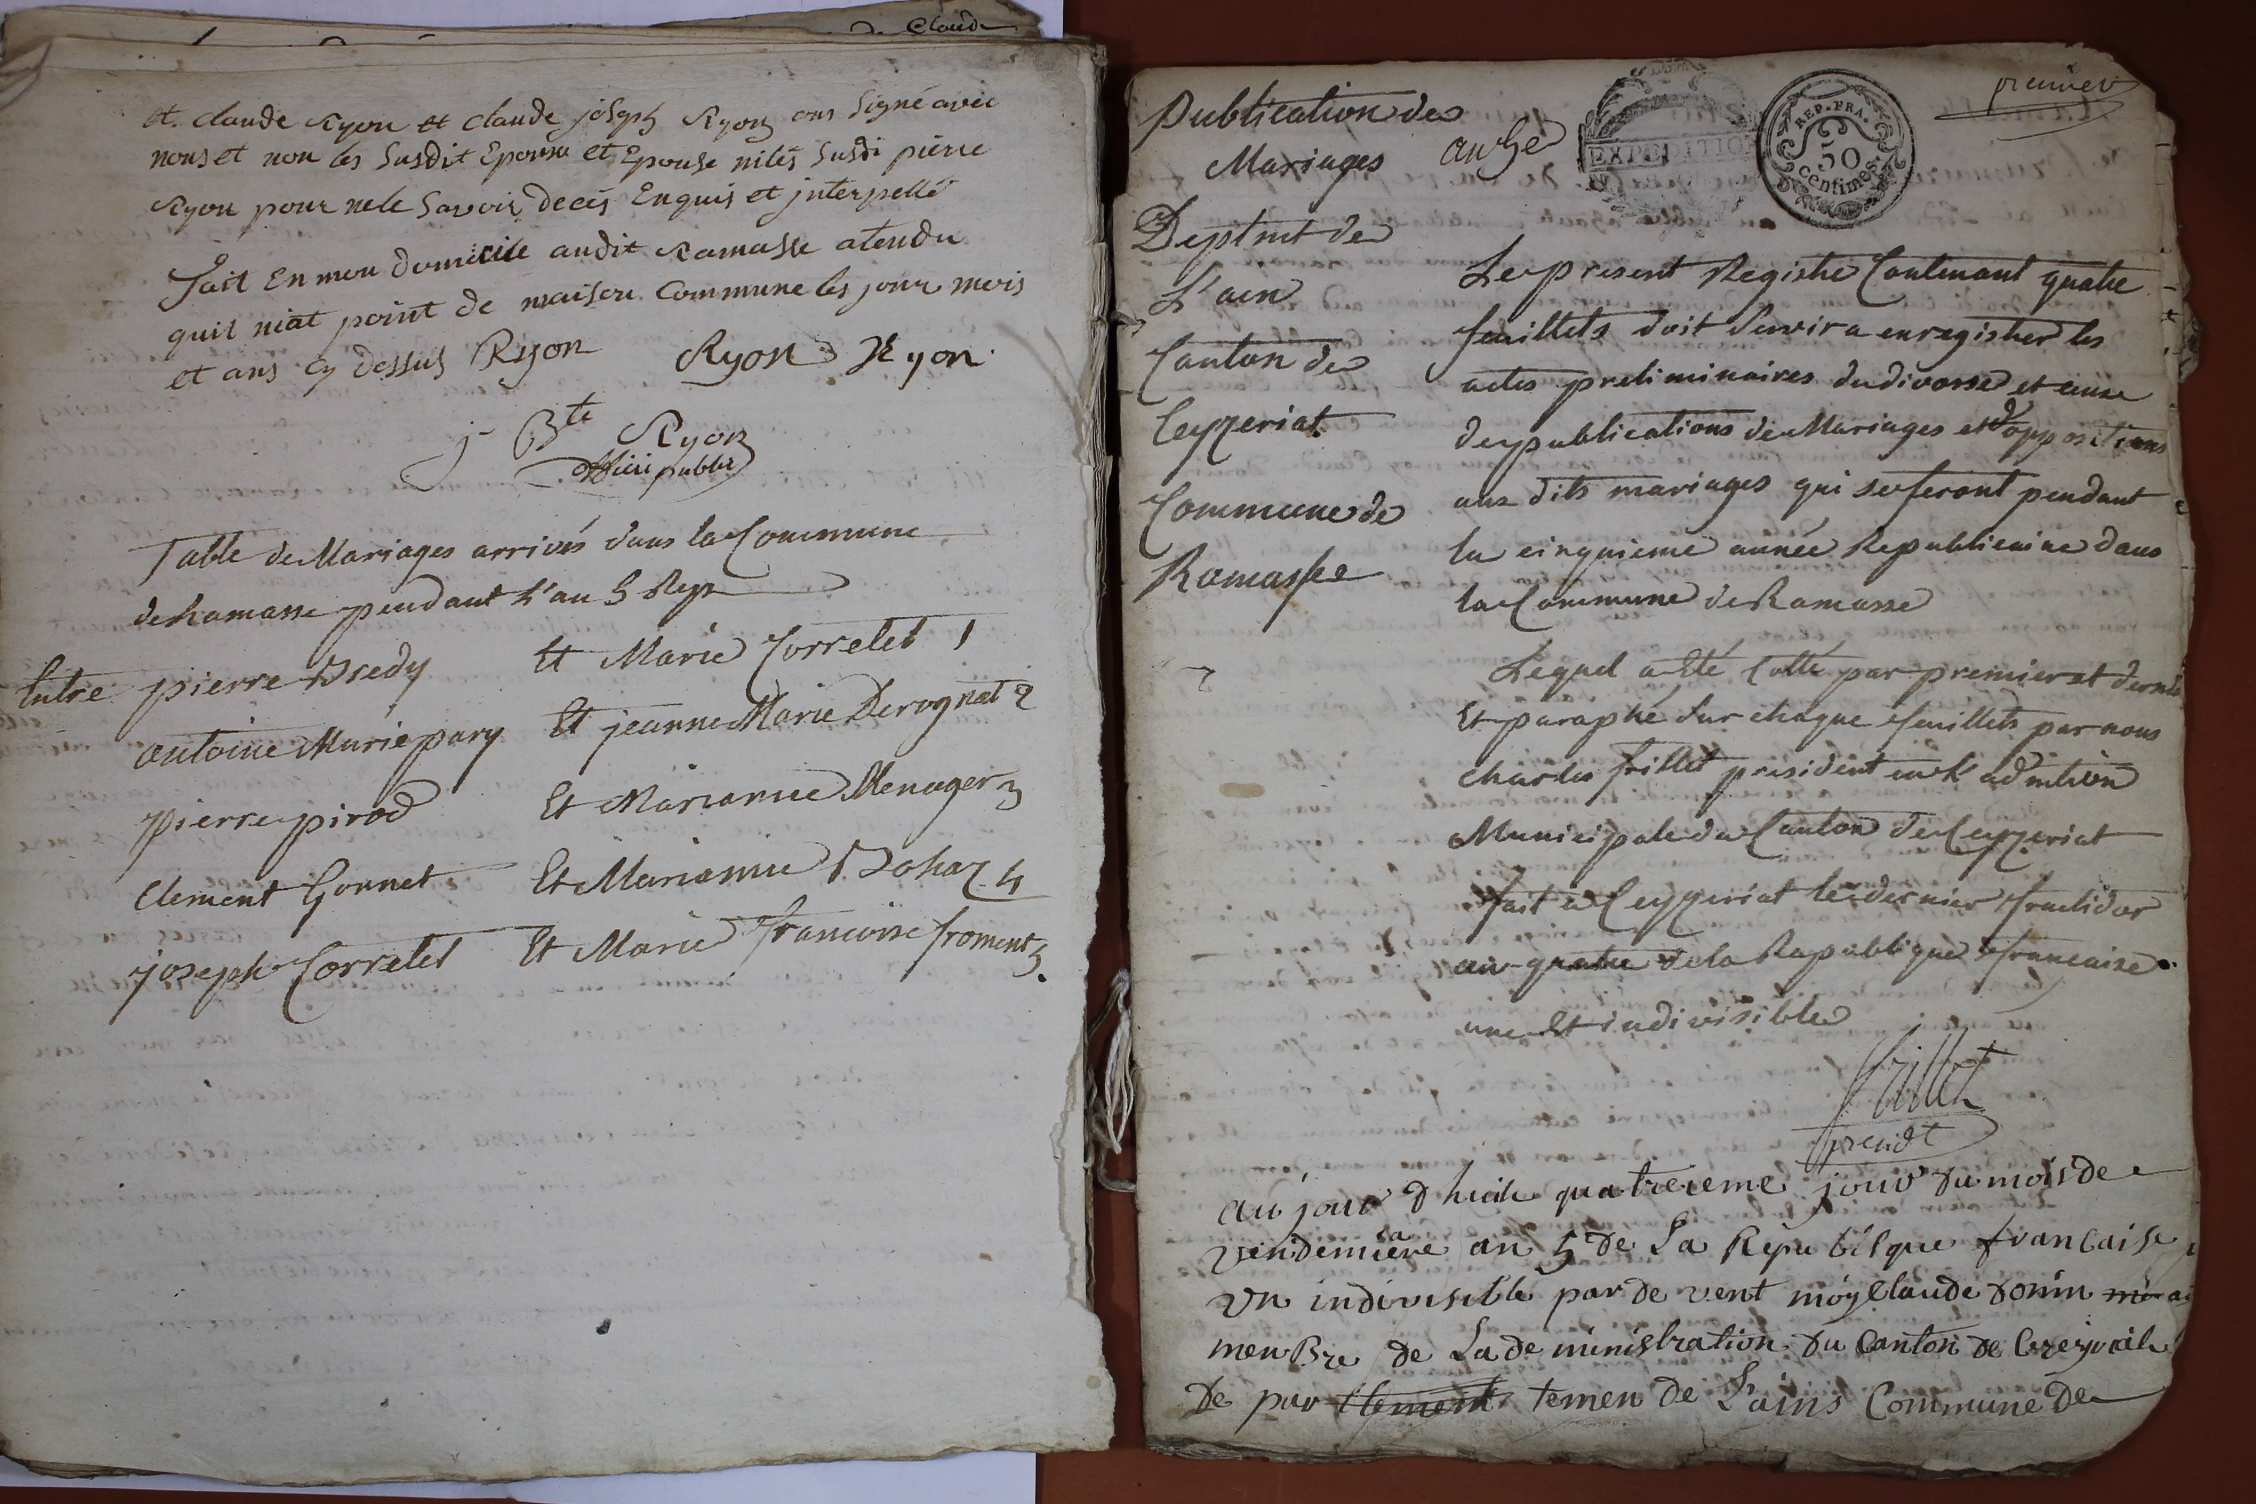 Claude
et. claude Ryon et claude joseph Ryon ons Signé avec
nous et non les Susdit Epoux et Epouse nités Susdi pierre
Ryon pour nele Savoir deces Enquis et jnterpellé
fait En mon domicile audit Ramasse atendu
quil niat point de maison Commune les jour mois
et ans Cy dessus Ryon Ryon Ryon
j Bte Ryon
officié public
Table de Mariages arrivés dans la Commune
de Ramasse pendant L'an 5 Rep
Entre pierre Bredy Et Marie Correlet 1
antoine Marie pary Et jeanne Marie Derognat 2
pierre pirod Et Marianne Menager 3
Clement Gonnet Et Marianne Bohaz 4
joseph Correlet Et Marie francoise froment 5.
premier
Publication de
Mariages
an 5e
EXPEDITION
REP. FRA.
50
centimes.
Deptmt de
L'ain
Canton de
Ceyzeriat
Commune de
Ramasse
Le present Registre Contenant quatre
feuillets doit Servir a enregistrer les
actes preliminaires du divorse et ceux
de publications de Mariages et d'oppositions
aux dits mariages qui se feront pendant
la cinquieme année Republicaine dans
la Commune de Ramasse
Lequel a Eté Cotté par premier et dernier
Et paraphé Sur chaque feuillets par nous
Charles frillet president en l'admtion
Municipale du Canton de Ceyzeriat
fait a Ceyzeriat le dernier fructidor
an quatre de la Republique francaise
une Et indivisible
frillet
presidt
aujour d huit quatreieme jour du mois de
vendemiere an 5 de La Repu bilque francaise
vn indivisible par de vent moy Claude donin
menbre de La de ministration du Canton de
de par temen de Lains Commune de